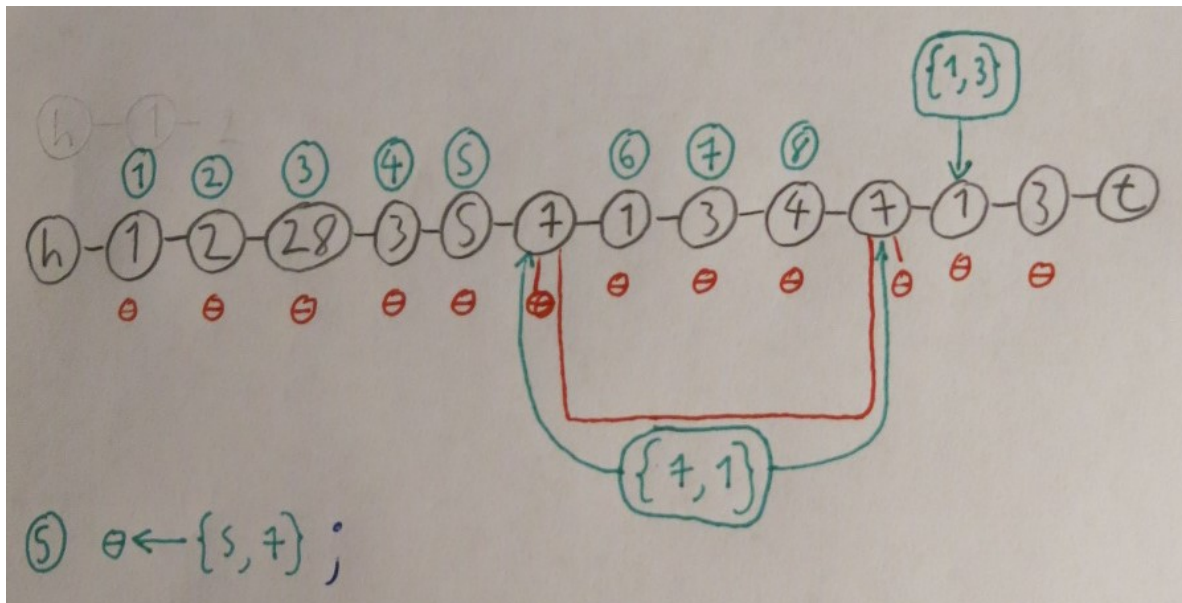 {1,3}
h 1 2
1 2 3 4 5 6 7 8
h 1 2 28 3 5 7 1 3 4 7 1 3 t
θ θ θ θ θ θ θ θ θ θ θ θ
{7,1}
5 θ ← {5,7} ;